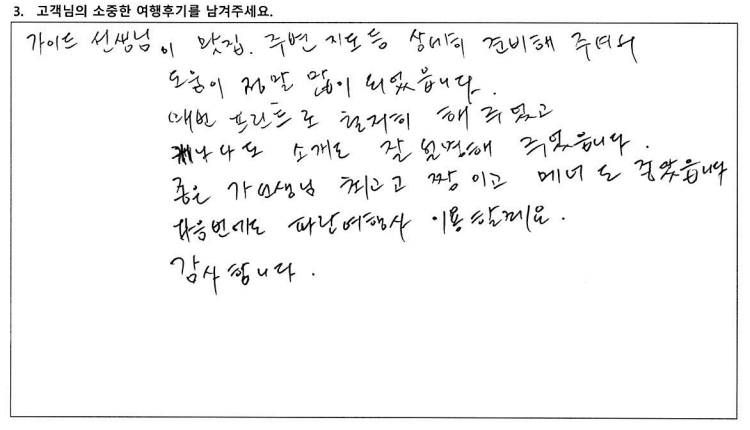 3. 고객님의 소중한 여행후기를 남겨주세요.
가이드 선생님이 맛집. 주변 지도 등 상세히 준비해 주셔서
도움이 정말 많이 되었읍니다.
매번 프린트로 철저히 해 주었고
소개도 잘 설명해 주었읍니다.
좋은 가 선생님 최고고 짱이고 매너도 좋았읍니다
다음번에도 파란여행사 이용할께요.
감사합니다.